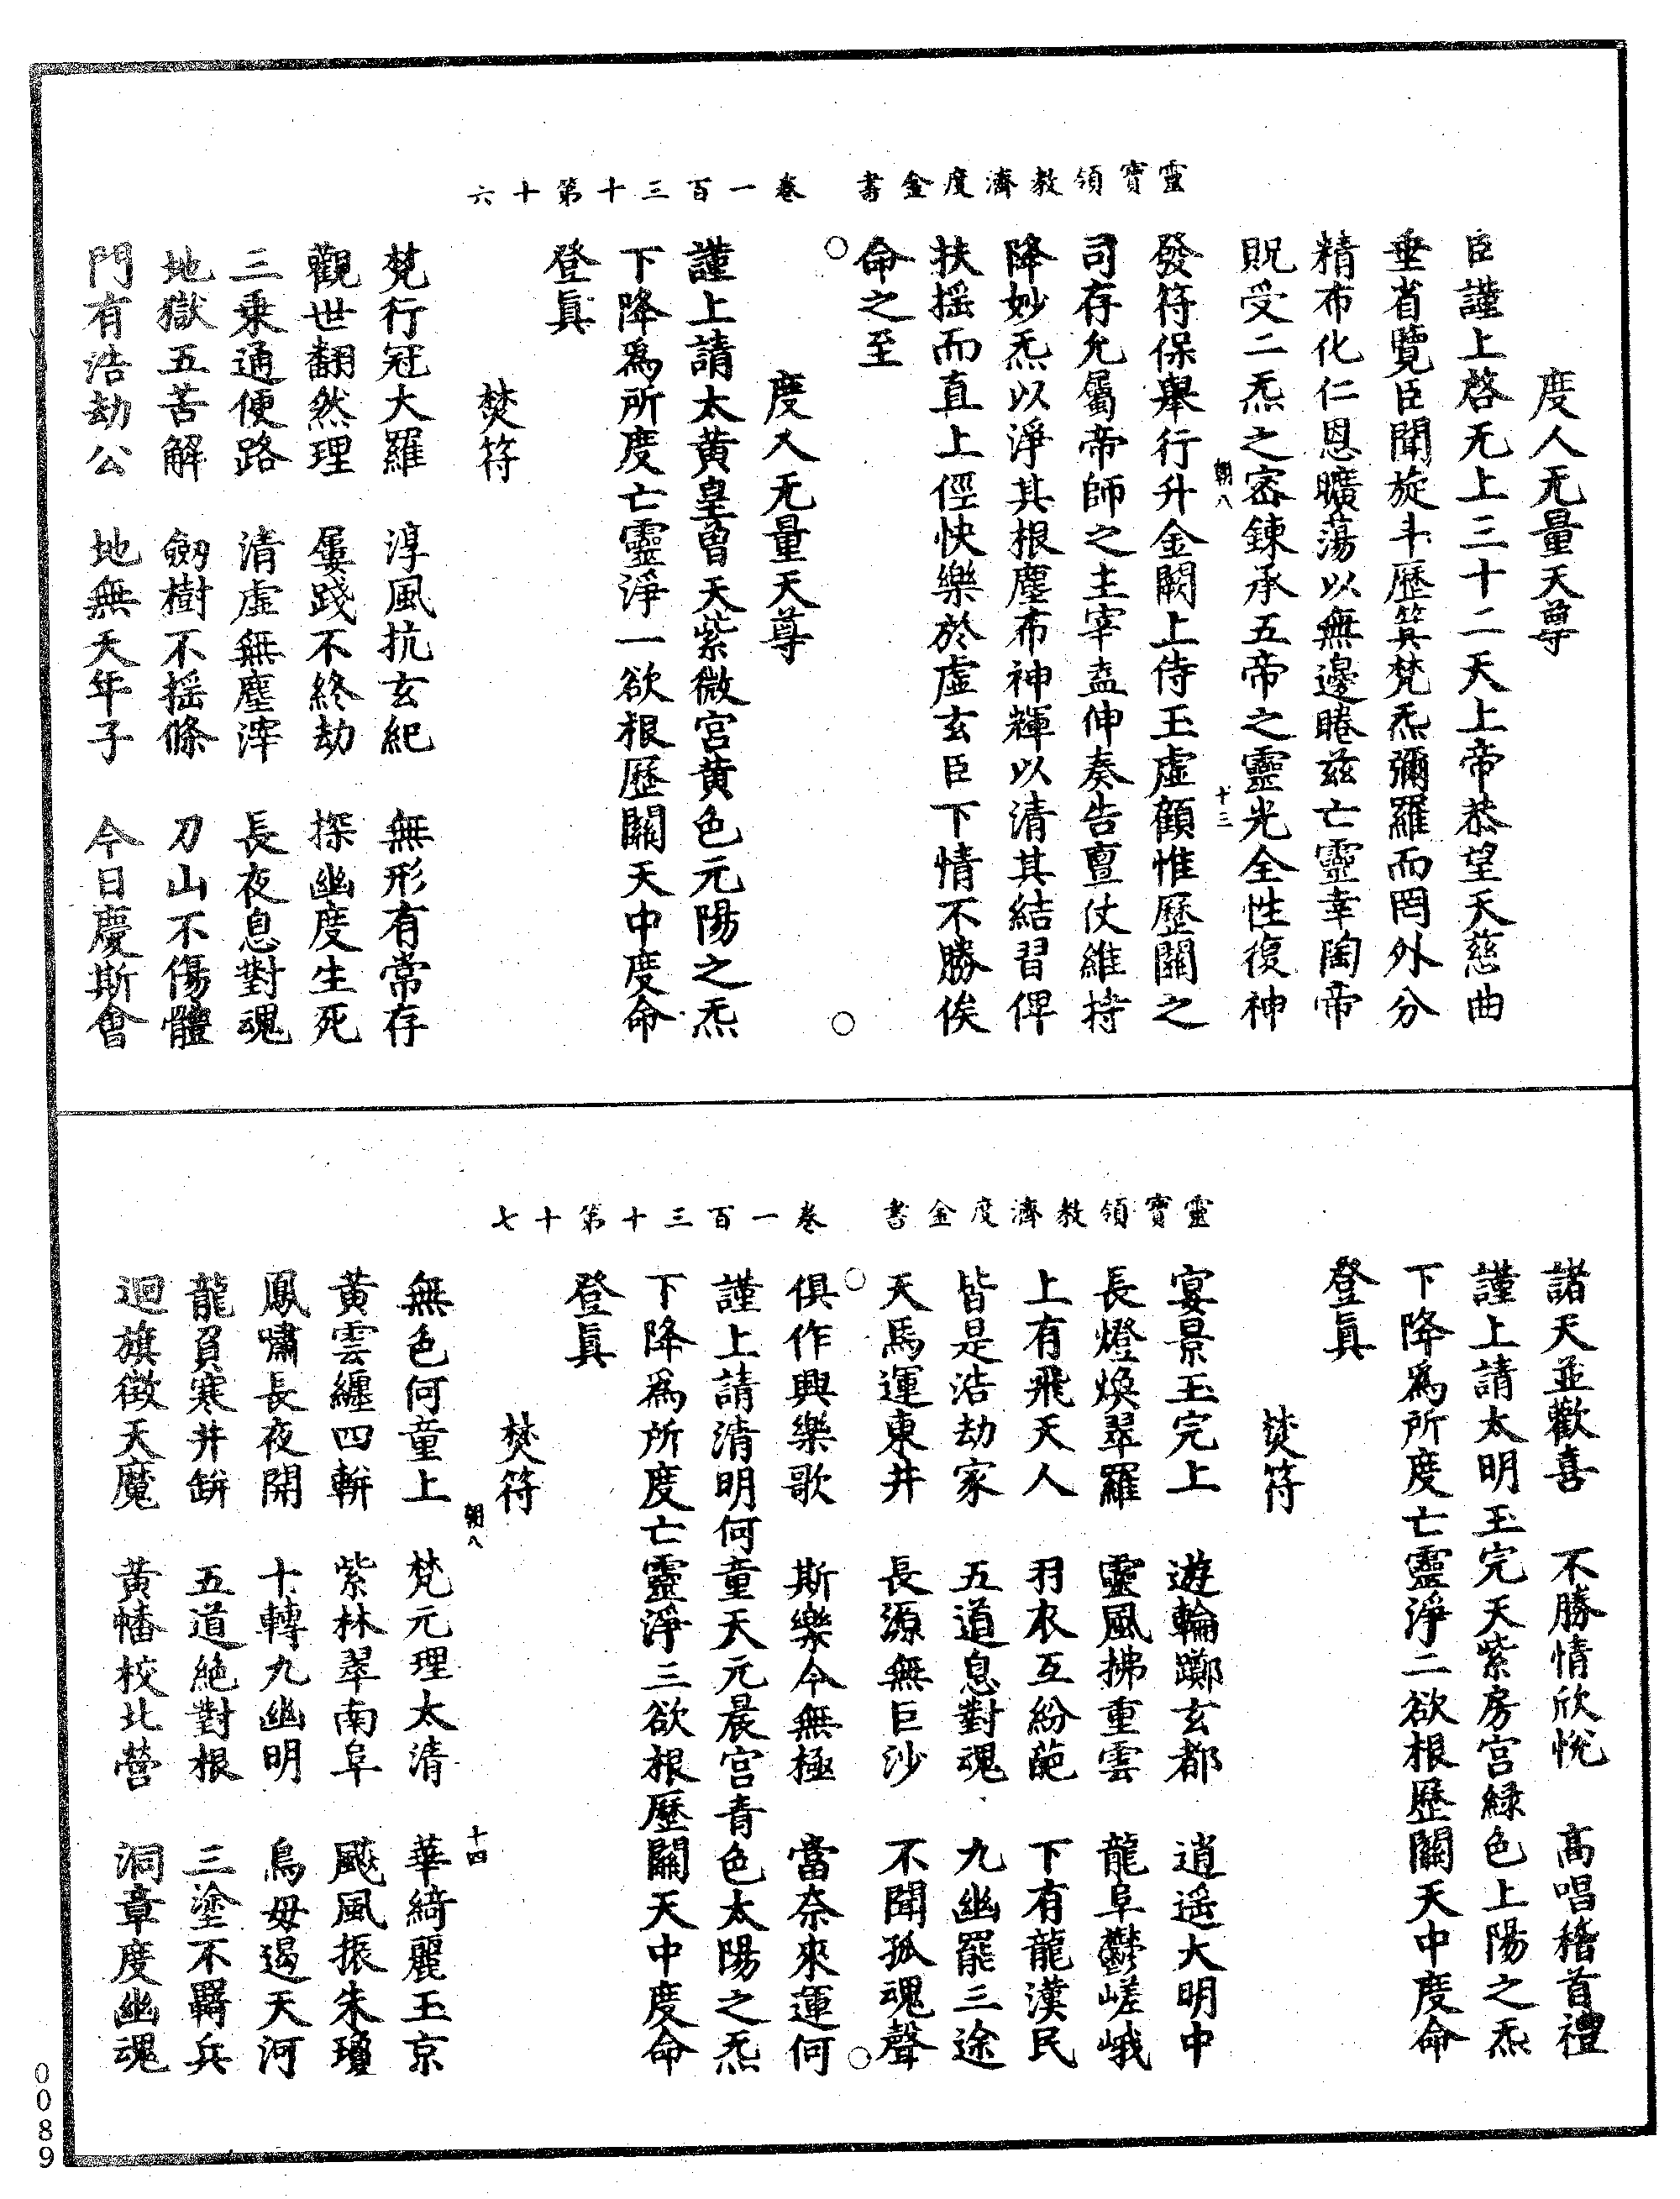 靈寶領教濟度金書　卷一百三十第十六
度人无量天尊
臣謹上啓无上三十二天上帝恭望天慈曲
垂省覽臣聞旋斗歷箕梵炁彌羅而罔外分
精布化仁恩曠蕩以無邊睠兹亡靈幸陶帝
貺受二炁之密鍊承五帝之靈光全性復神
朝八　十三
發符保舉行升金闕上侍玉虛顧惟歷關之
司存允屬帝師之主宰盍伸奏告亶仗維持
降妙炁以淨其根塵布神輝以清其結習俾
扶摇而直上徑快樂於虛玄臣下情不勝俟
命之至
○　○
度人无量天尊
謹上請太黄皇曾天紫微宮黄色元陽之炁
下降爲所度亡靈淨一欲根歷關天中度命
登真
焚符
梵行冠大羅　淳風抗玄紀　無形有常存
觀世翻然理　屢踐不終劫　探幽度生死
三乘通便路　清虛無塵滓　長夜息對魂
地獄五苦解　劒樹不摇條　刀山不傷體
門有浩劫公　地無夭年子　今日慶斯會
靈寶領教濟度金書　卷一百三十第十七
諸天並歡喜　不勝情欣悅　高唱稽首禮
謹上請太明玉完天紫房宮緑色上陽之炁
下降爲所度亡靈淨二欲根歷關天中度命
登真
焚符
宴景玉完上　遊輪躑玄都　逍遥大明中
長燈煥翠羅　靈風拂重雲　龍阜鬱嵯峨
上有飛天人　羽衣互紛葩　下有龍漢民
皆是浩劫家　五道息對魂　九幽罷三途
天馬運東井　長源無巨沙　不聞孤魂聲
○　○
俱作興樂歌　斯樂今無極　當奈來運何
謹上請清明何童天元晨宮青色太陽之炁
下降爲所度亡靈淨三欲根歷關天中度命
登真
焚符
朝八　十四
無色何童上　梵元理太清　華綺麗玉京
黄雲纏四軿　紫林翠南阜　飈風振朱瓊
鳳嘯長夜開　十轉九幽明　鳥母遏天河
龍負寒井缾　五道絶對根　三塗不羇兵
迴旗徵天魔　黄幡校北營　洞章度幽魂
0089